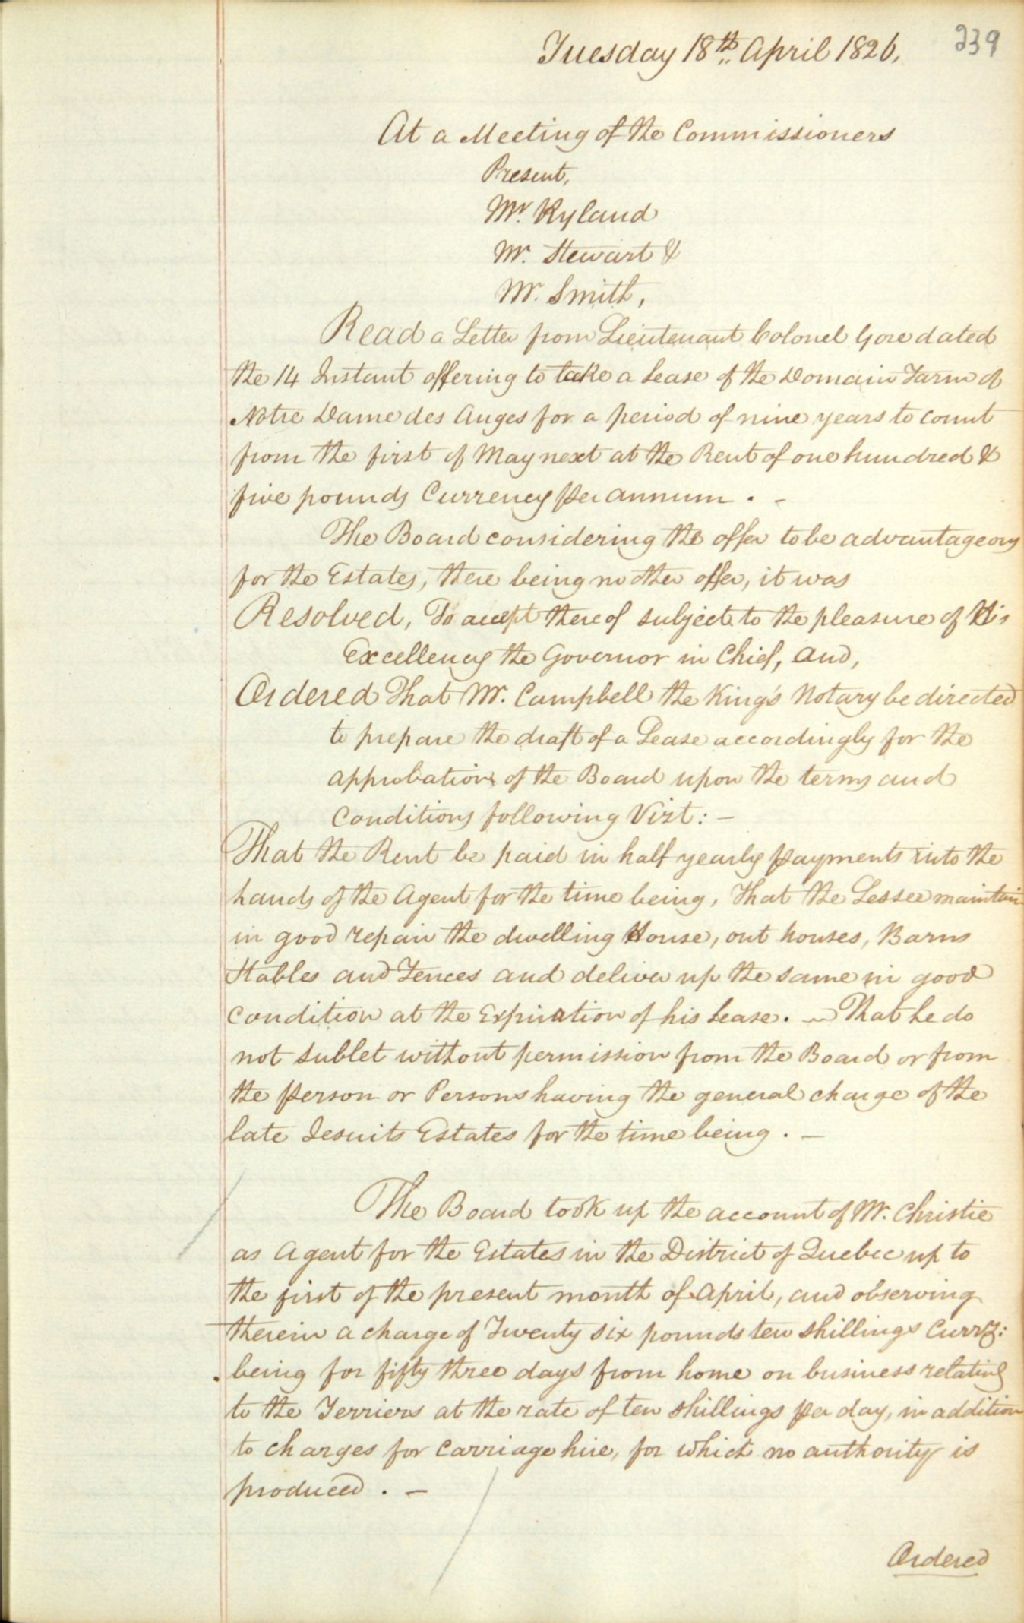 239
Tuesday 18th April 1826.
At a Meeting of the Commissioners
Present,
Mr. Ryland
Mr. Stewart &
Mr. Smith,
Read a Letter from Lieutenant Colonel Gore dated
the 14 Instant offering to take a Lease of the Domain Farm of
Notre Dame des Anges for a period of nine years to count
from the first of May next at the Rent of one hundred &
five pounds Currency per annum. -
The Board considering the offer to be advantageous
for the Estates, there being no other offer, it was
Resolved, To accept thereof subject to the pleasure of His
Excellency the Governor in Chief, and,
Ordered That Mr. Campbell the King's Notary be directed
to prepare the draft of a Lease accordingly for the
approbation of the Board upon the terms and
Conditions following Vizt: -
That the Rent be paid in half yearly payments into the
hands of the Agent for the time being, That the Lessee maintain
in good repair the dwelling House, out houses, Barns
Stables and Fences and deliver up the same in good
Condition at the Expiration of his Lease. - That he do
not sublet without permission from the Board or from
the person or Persons having the general charge of the
late Jesuits Estates for the time being. -
The Board took up the account of Mr. Christie
as Agent for the Estates in the District of Quebec up to
the first of the present month of April, and observing
therein a charge of Twenty six pounds ten shillings Curry:
being for fifty three days from home on business relating
to the Terriers at the rate of ten shillings per day, in addition
to charges for Carriage hire, for which no authority is
produced. -
Ordered